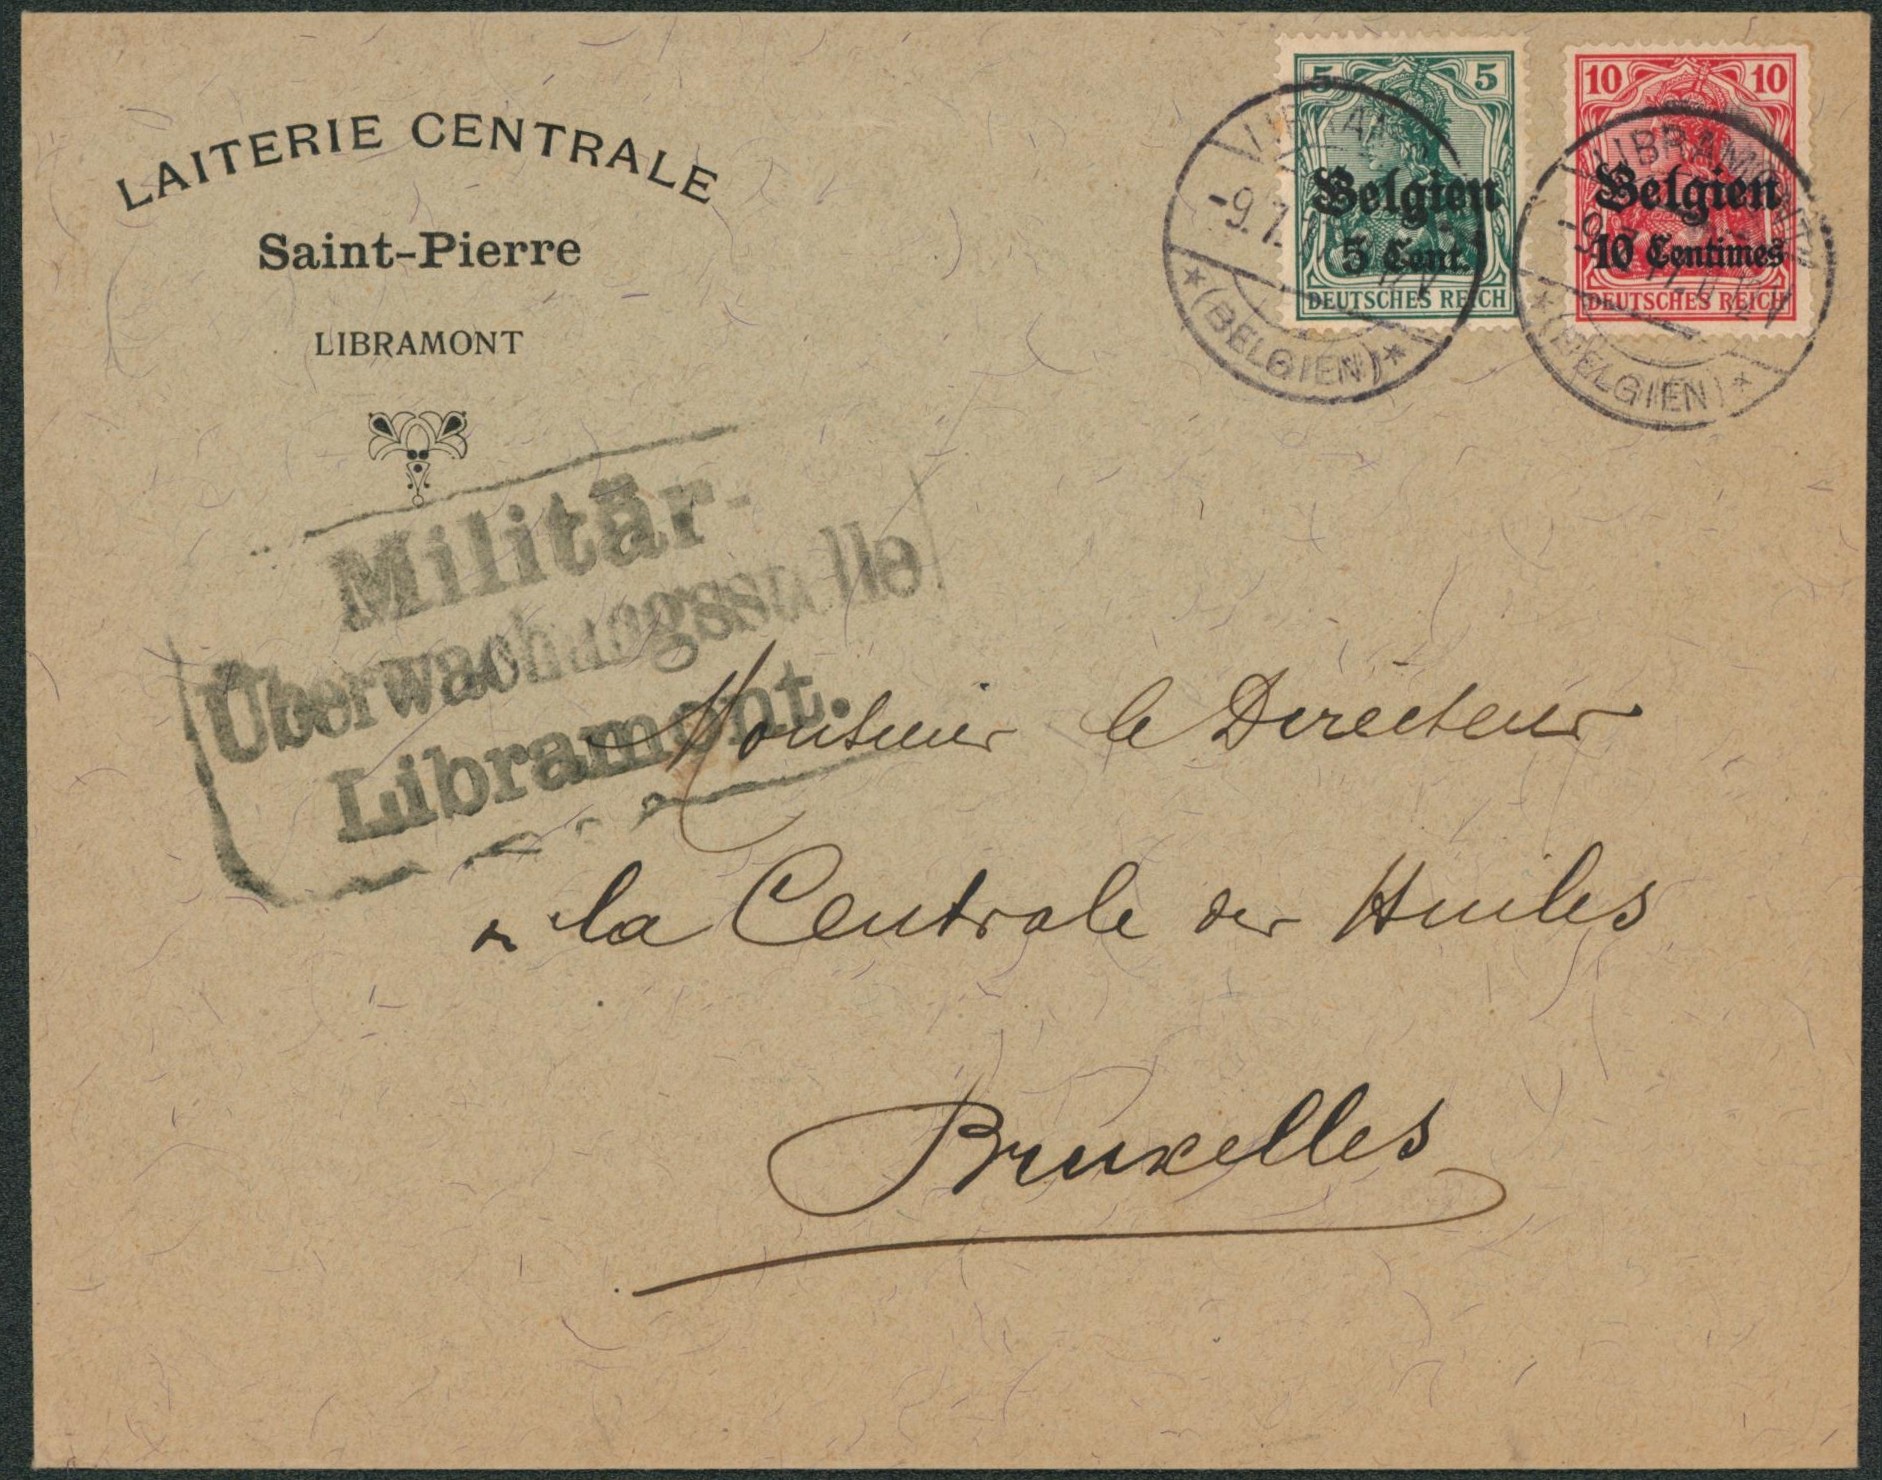 LAITERIE CENTRALE
Saint-Pierre
LIBRAMONT
5 5
Belgien
5 Cent.
DEUTSCHES REICH
10 10
Belgien
10 Centimes
DEUTSCHES REICH
-9.7.
*(BELGIEN)*
LIBRAMONT
*(BELGIEN)*
Militär-
Überwachungsstelle
Libramont.
Monsieur le Directeur
la Centrale des Huiles
Bruxelles